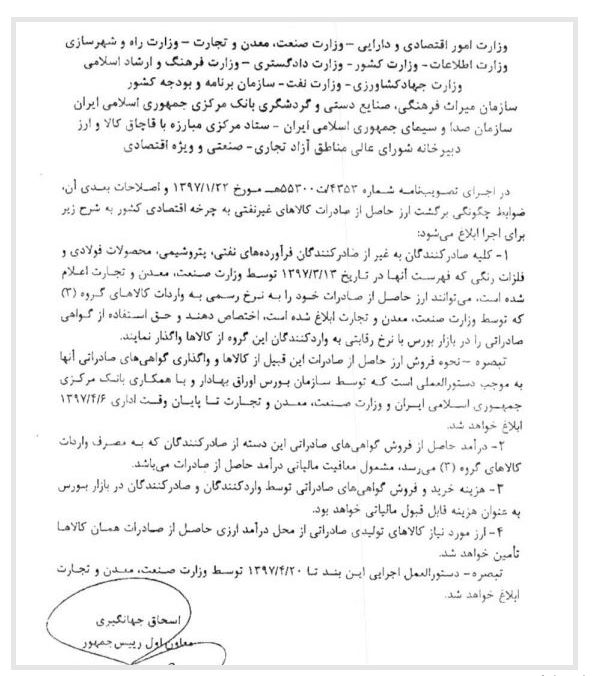 وزارت امور اقتصادی و دارایی – وزارت صنعت، معدن و تجارت – وزارت راه و شهرسازی
وزارت اطلاعات- وزارت کشور- وزارت دادگستری – وزارت فرهنگ و ارشاد اسلامی
وزارت جهادکشاورزی- وزارت نفت- سازمان برنامه و بودجه کشور
سازمان میراث فرهنگی، صنایع دستی و گردشگری بانک مرکزی جمهوری اسلامی ایران
سازمان صدا و سیمای جمهوری اسلامی ایران - ستاد مرکزی مبارزه با قاچاق کالا و ارز
دبیرخانه شورای عالی مناطق آزاد تجاری- صنعتی و ویژه اقتصادی
در اجرای تصویب‌نامه شماره ۴۳۵۳/ت۵۵۳۰۰هـ مورخ ۱۳۹۷/۱/۲۲ و اصلاحات بعدی آن،
ضوابط چگونگی برگشت ارز حاصل از صادرات کالاهای غیرنفتی به چرخه اقتصادی کشور به شرح زیر
برای اجرا ابلاغ می‌شود:
۱- کلیه صادرکنندگان به غیر از صادرکنندگان فرآورده‌های نفتی، پتروشیمی، محصولات فولادی و
فلزات رنگی که فهرست آنها در تاریخ ۱۳۹۷/۳/۱۳ توسط وزارت صنعت، معدن و تجارت اعلام
شده است، می‌توانند ارز حاصل از صادرات خود را به نرخ رسمی به واردات کالاهای گروه (۳)
که توسط وزارت صنعت، معدن و تجارت ابلاغ شده است، اختصاص دهند و حق استفاده از گواهی
صادراتی را در بازار بورس با نرخ رقابتی به واردکنندگان این گروه از کالاها واگذار نمایند.
تبصره – نحوه فروش ارز حاصل از صادرات این قبیل از کالاها و واگذاری گواهی‌های صادراتی آنها
به موجب دستورالعملی است که توسط سازمان بورس اوراق بهادار و با همکاری بانک مرکزی
جمهوری اسلامی ایران و وزارت صنعت، معدن و تجارت تا پایان وقت اداری ۱۳۹۷/۴/۶
ابلاغ خواهد شد.
۲- درآمد حاصل از فروش گواهی‌های صادراتی این دسته از صادرکنندگان که به مصرف واردات
کالاهای گروه (۳) می‌رسد، مشمول معافیت مالیاتی درآمد حاصل از صادرات می‌باشد.
۳- هزینه خرید و فروش گواهی‌های صادراتی توسط واردکنندگان و صادرکنندگان در بازار بورس
به عنوان هزینه قابل قبول مالیاتی خواهد بود.
۴- ارز مورد نیاز کالاهای تولیدی صادراتی از محل درآمد ارزی حاصل از صادرات همان کالاها
تأمین خواهد شد.
تبصره- دستورالعمل اجرایی این بند تا ۱۳۹۷/۴/۲۰ توسط وزارت صنعت، معدن و تجارت
ابلاغ خواهد شد.
اسحاق جهانگیری
معاون اول رییس‌جمهور